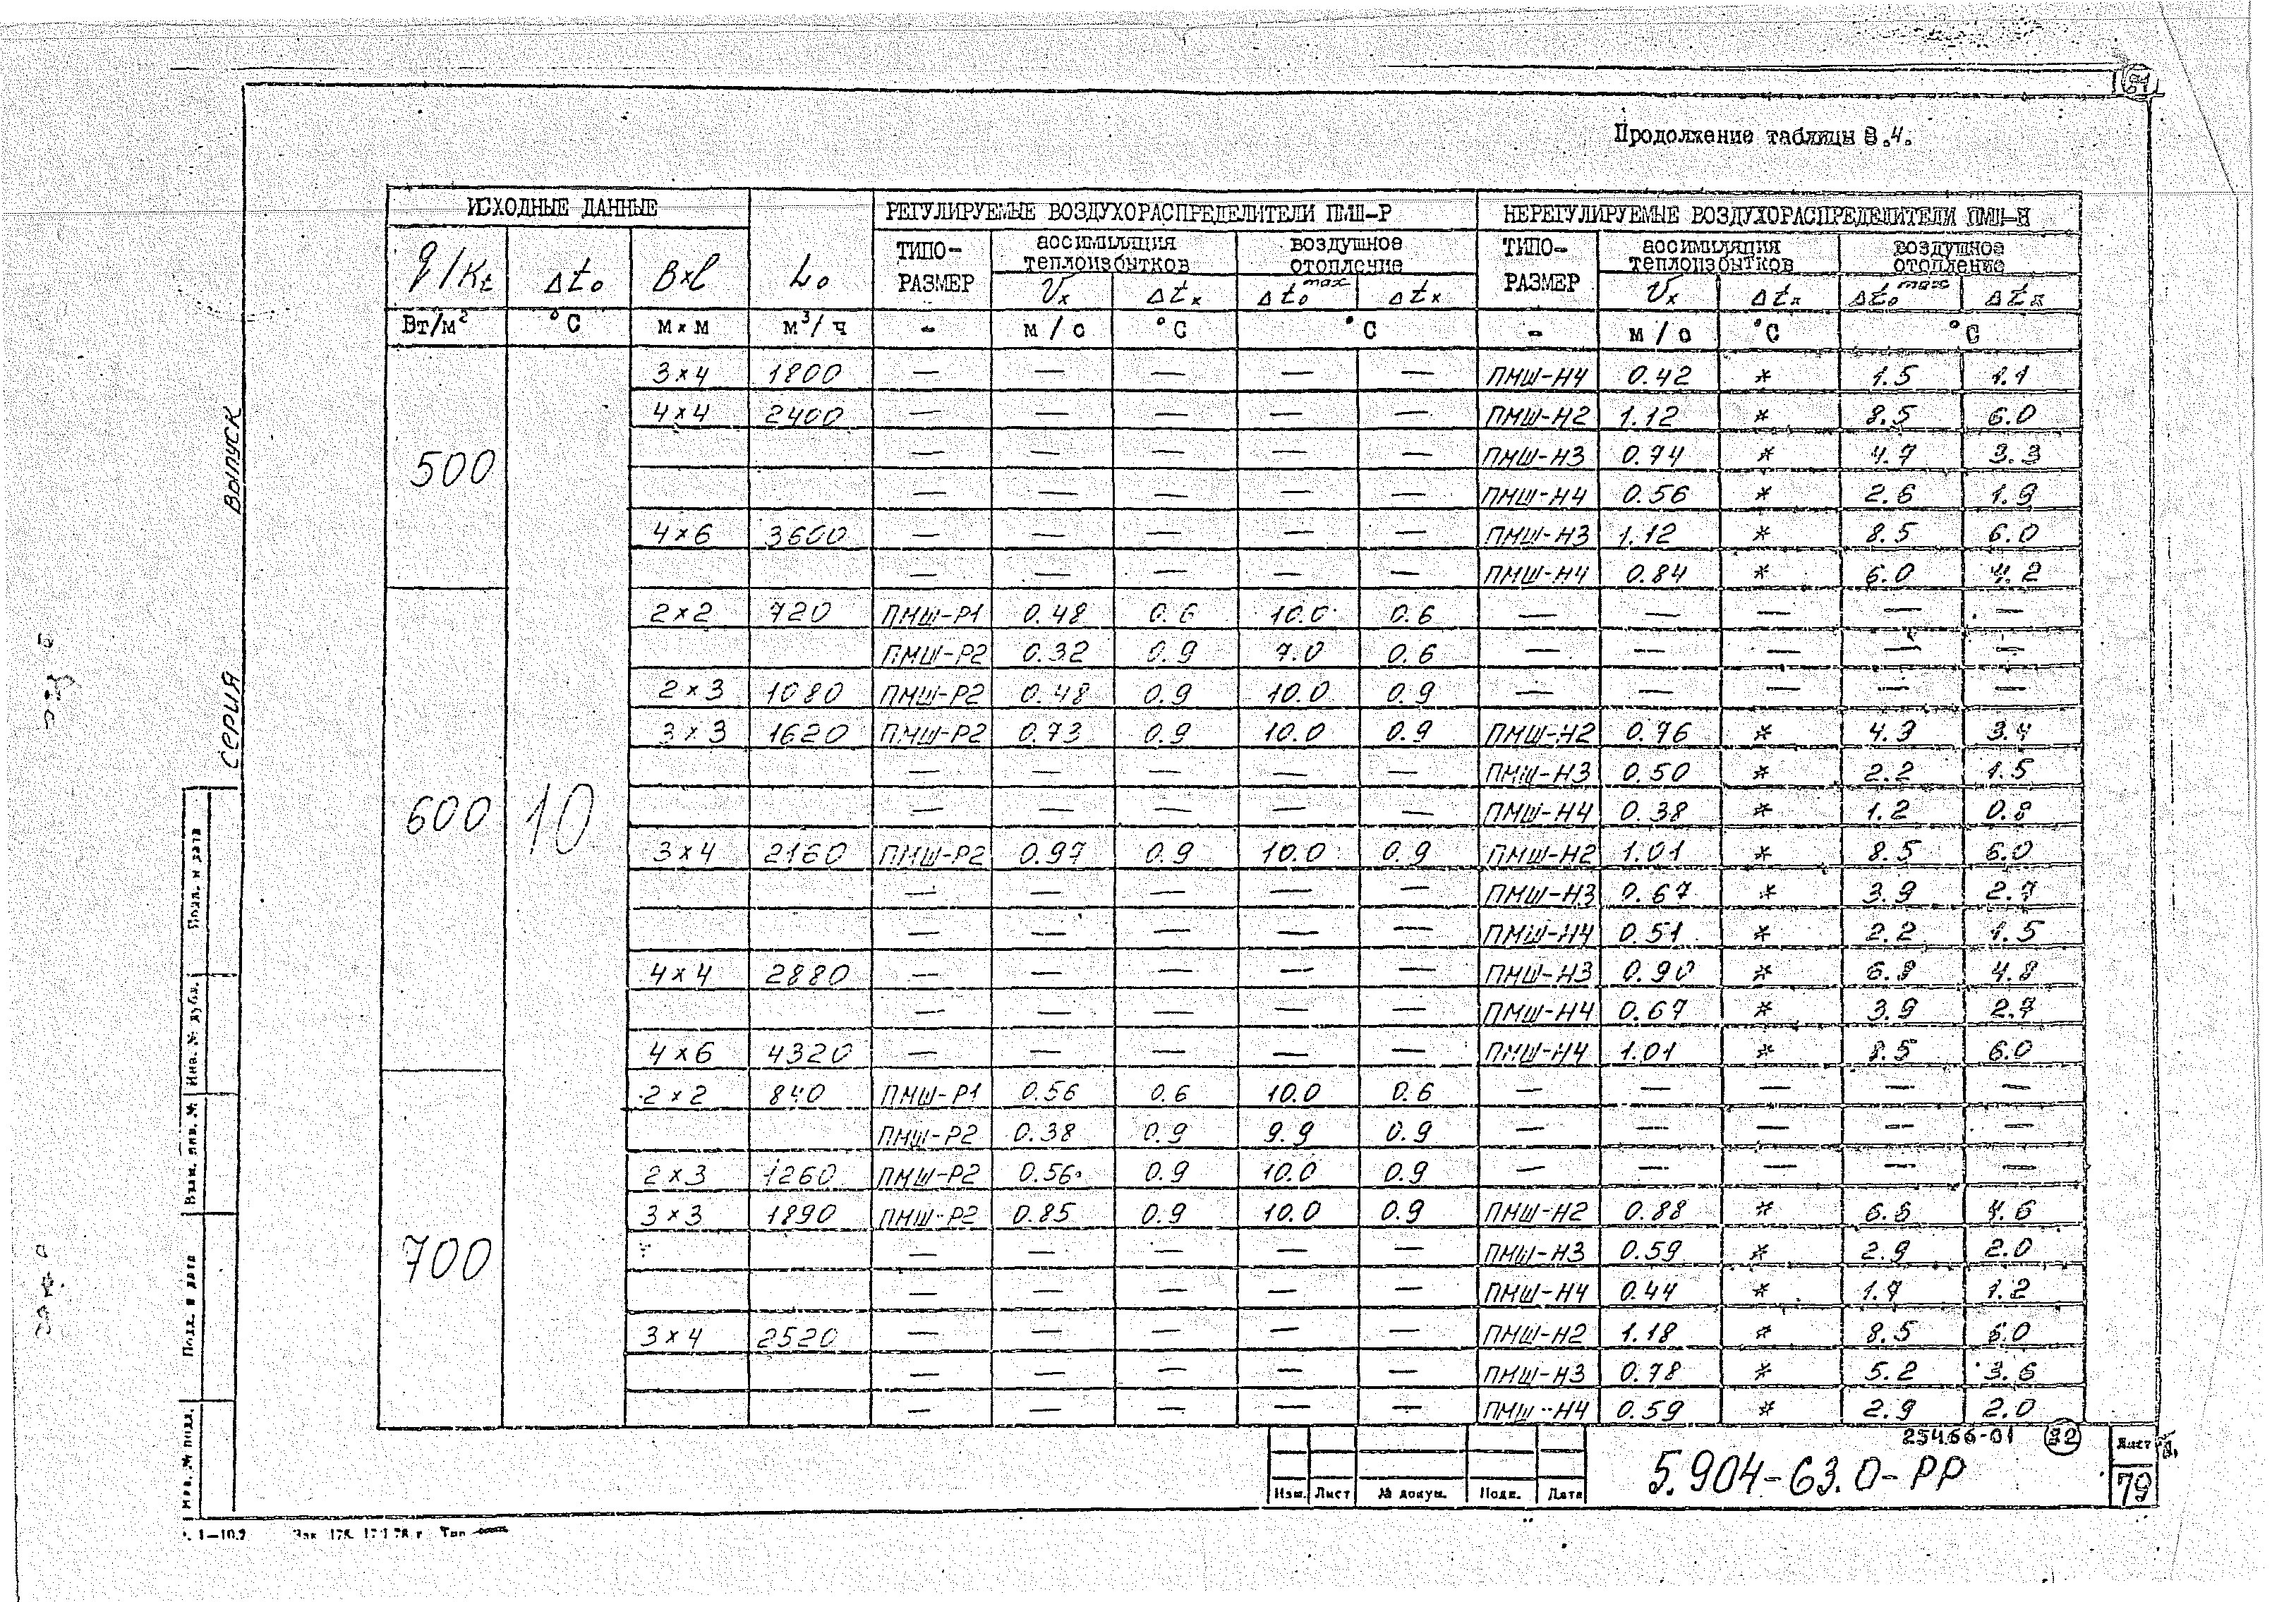 Продолжение таблицы 8.4.
ИСХОДНЫЕ ДАННЫЕ L₀ РЕГУЛИРУЕМЫЕ ВОЗДУХОРАСПРЕДЕЛИТЕЛИ ПМШ-Р НЕРЕГУЛИРУЕМЫЕ ВОЗДУХОРАСПРЕДЕЛИТЕЛИ ПМШ-Н
q/Kt Δt₀ B×l ТИПО-РАЗМЕР ассимиляция теплоизбытков воздушное отопление ТИПО-РАЗМЕР ассимиляция теплоизбытков воздушное отопление
Vx Δtx Δt₀max Δtx Vx Δtx Δt₀max Δtx
Вт/м² °С м×м м³/ч - м/с °С °С - м/с °С °С
500 10
3×4 1800 — — — — — ПМШ-Н4 0.42 * 1.5 1.1
4×4 2400 — — — — — ПМШ-Н2 1.12 * 8.5 6.0
— — — — — ПМШ-Н3 0.74 * 4.7 3.3
— — — — — ПМШ-Н4 0.56 * 2.6 1.9
4×6 3600 — — — — — ПМШ-Н3 1.12 * 8.5 6.0
— — — — — ПМШ-Н4 0.84 * 6.0 4.2
600
2×2 720 ПМШ-Р1 0.48 0.6 10.0 0.6 — — — — —
ПМШ-Р2 0.32 0.9 7.0 0.6 — — — — —
2×3 1080 ПМШ-Р2 0.48 0.9 10.0 0.9 — — — — —
3×3 1620 ПМШ-Р2 0.73 0.9 10.0 0.9 ПМШ-Н2 0.76 * 4.3 3.4
— — — — — ПМШ-Н3 0.50 * 2.2 1.5
— — — — — ПМШ-Н4 0.38 * 1.2 0.8
3×4 2160 ПМШ-Р2 0.97 0.9 10.0 0.9 ПМШ-Н2 1.01 * 8.5 6.0
— — — — — ПМШ-Н3 0.67 * 3.9 2.7
— — — — — ПМШ-Н4 0.51 * 2.2 1.5
4×4 2880 — — — — — ПМШ-Н3 0.90 * 6.8 4.8
— — — — — ПМШ-Н4 0.67 * 3.9 2.7
4×6 4320 — — — — — ПМШ-Н4 1.01 * 8.5 6.0
700
2×2 840 ПМШ-Р1 0.56 0.6 10.0 0.6 — — — — —
ПМШ-Р2 0.38 0.9 9.9 0.9 — — — — —
2×3 1260 ПМШ-Р2 0.56 0.9 10.0 0.9 — — — — —
3×3 1890 ПМШ-Р2 0.85 0.9 10.0 0.9 ПМШ-Н2 0.88 * 6.6 4.6
— — — — — ПМШ-Н3 0.59 * 2.9 2.0
— — — — — ПМШ-Н4 0.44 * 1.7 1.2
3×4 2520 — — — — — ПМШ-Н2 1.18 * 8.5 6.0
— — — — — ПМШ-Н3 0.78 * 5.2 3.6
— — — — — ПМШ-Н4 0.59 * 2.9 2.0
ВЫПУСК
СЕРИЯ
Подп. и дата
Инв. № дубл.
Взам. инв. №
Подп. и дата
Инв. № подл.
25466-01
5.904-63.0-РР
Лист
79
Изм. Лист № докум. Подп. Дата